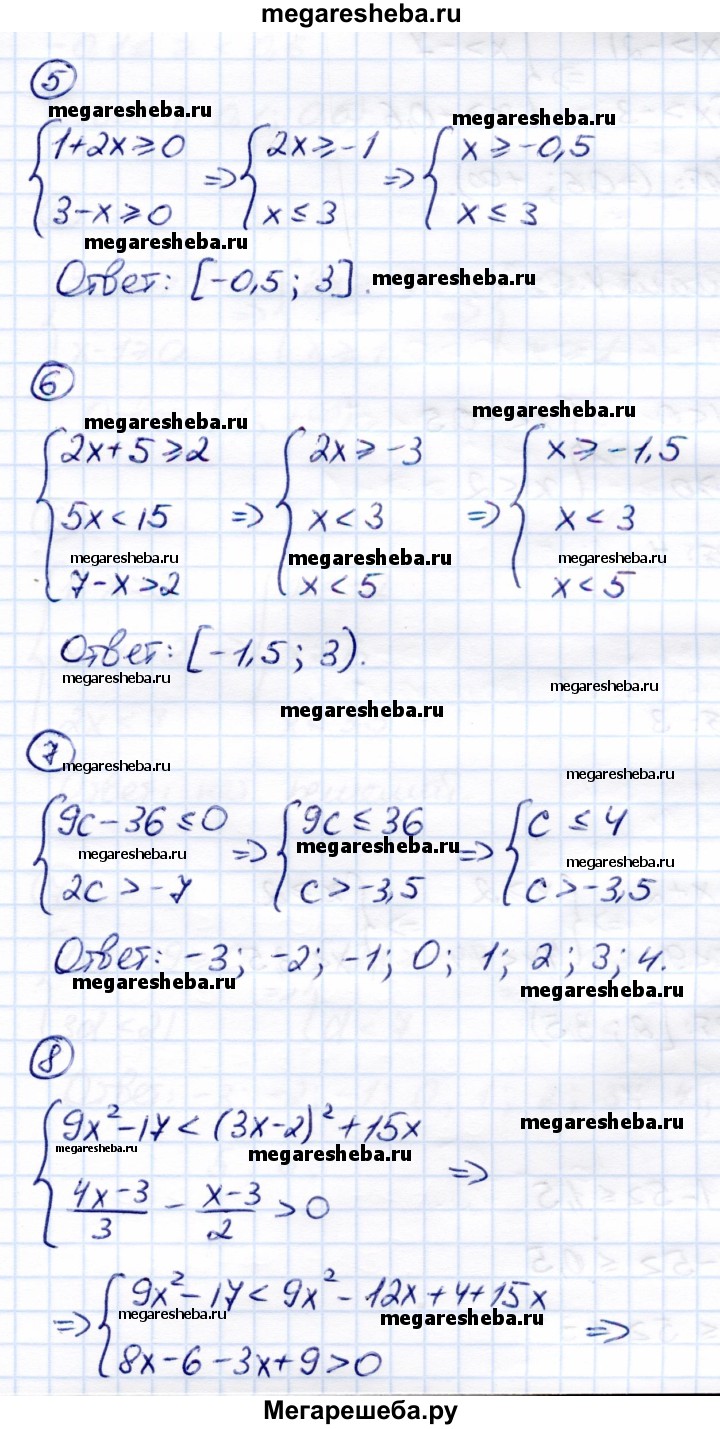 megaresheba.ru
5
megaresheba.ru megaresheba.ru
{ 1+2x ≥ 0 { 2x ≥ -1 { x ≥ -0,5
⇒ ⇒
3-x ≥ 0 x ≤ 3 x ≤ 3
megaresheba.ru
Ответ: [-0,5; 3]. megaresheba.ru
6
megaresheba.ru megaresheba.ru
{ 2x+5 ≥ 2 { 2x ≥ -3 { x ≥ -1,5
5x < 15 ⇒ x < 3 ⇒ x < 3
megaresheba.ru megaresheba.ru megaresheba.ru
7-x > 2 x < 5 x < 5
Ответ: [-1,5; 3).
megaresheba.ru megaresheba.ru
megaresheba.ru
7 megaresheba.ru megaresheba.ru
{ 9c-36 ≤ 0 { 9c ≤ 36 { c ≤ 4
megaresheba.ru ⇒ megaresheba.ru ⇒ megaresheba.ru
2c > -7 c > -3,5 c > -3,5
Ответ: -3; -2; -1; 0; 1; 2; 3; 4.
megaresheba.ru megaresheba.ru
8
{ 9x²-17 < (3x-2)²+15x megaresheba.ru
megaresheba.ru megaresheba.ru ⇒
(4x-3)/3 - (x-3)/2 > 0
{ 9x²-17 < 9x²-12x+4+15x
⇒ megaresheba.ru megaresheba.ru ⇒
8x-6-3x+9 > 0
Мегарешеба.ру